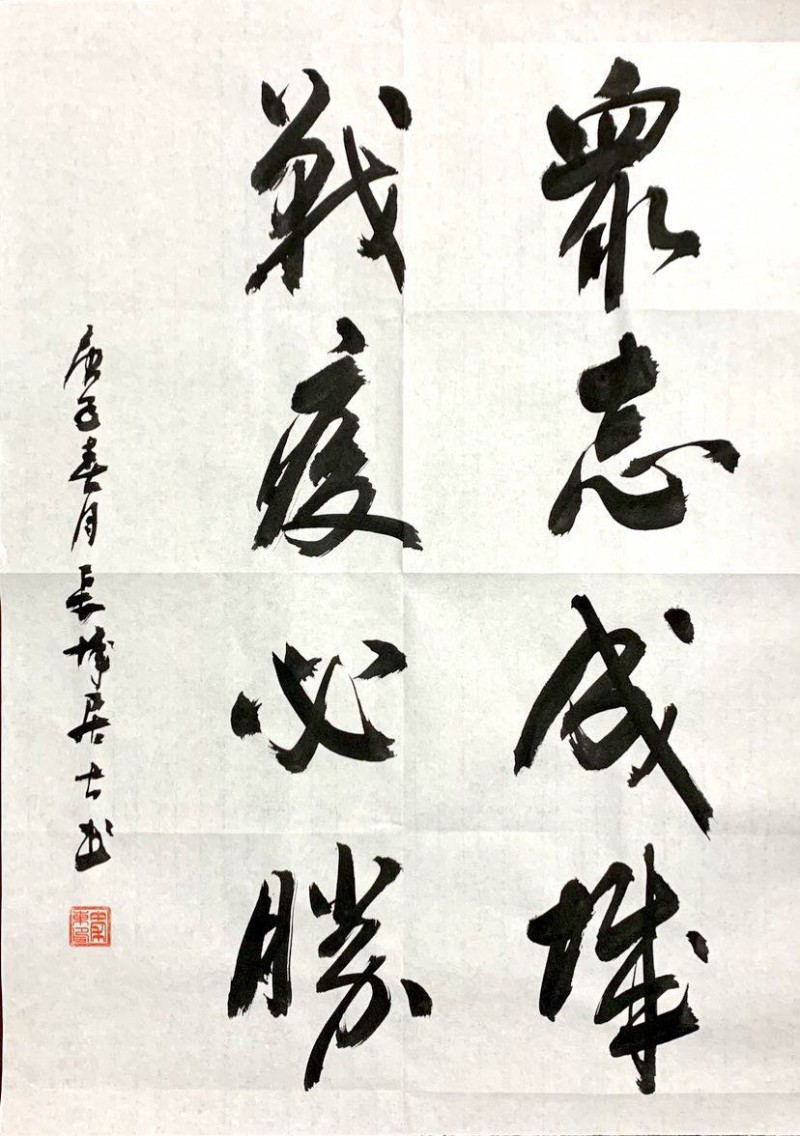 眾志成城
戰疫必勝
庚子春月長城居士書